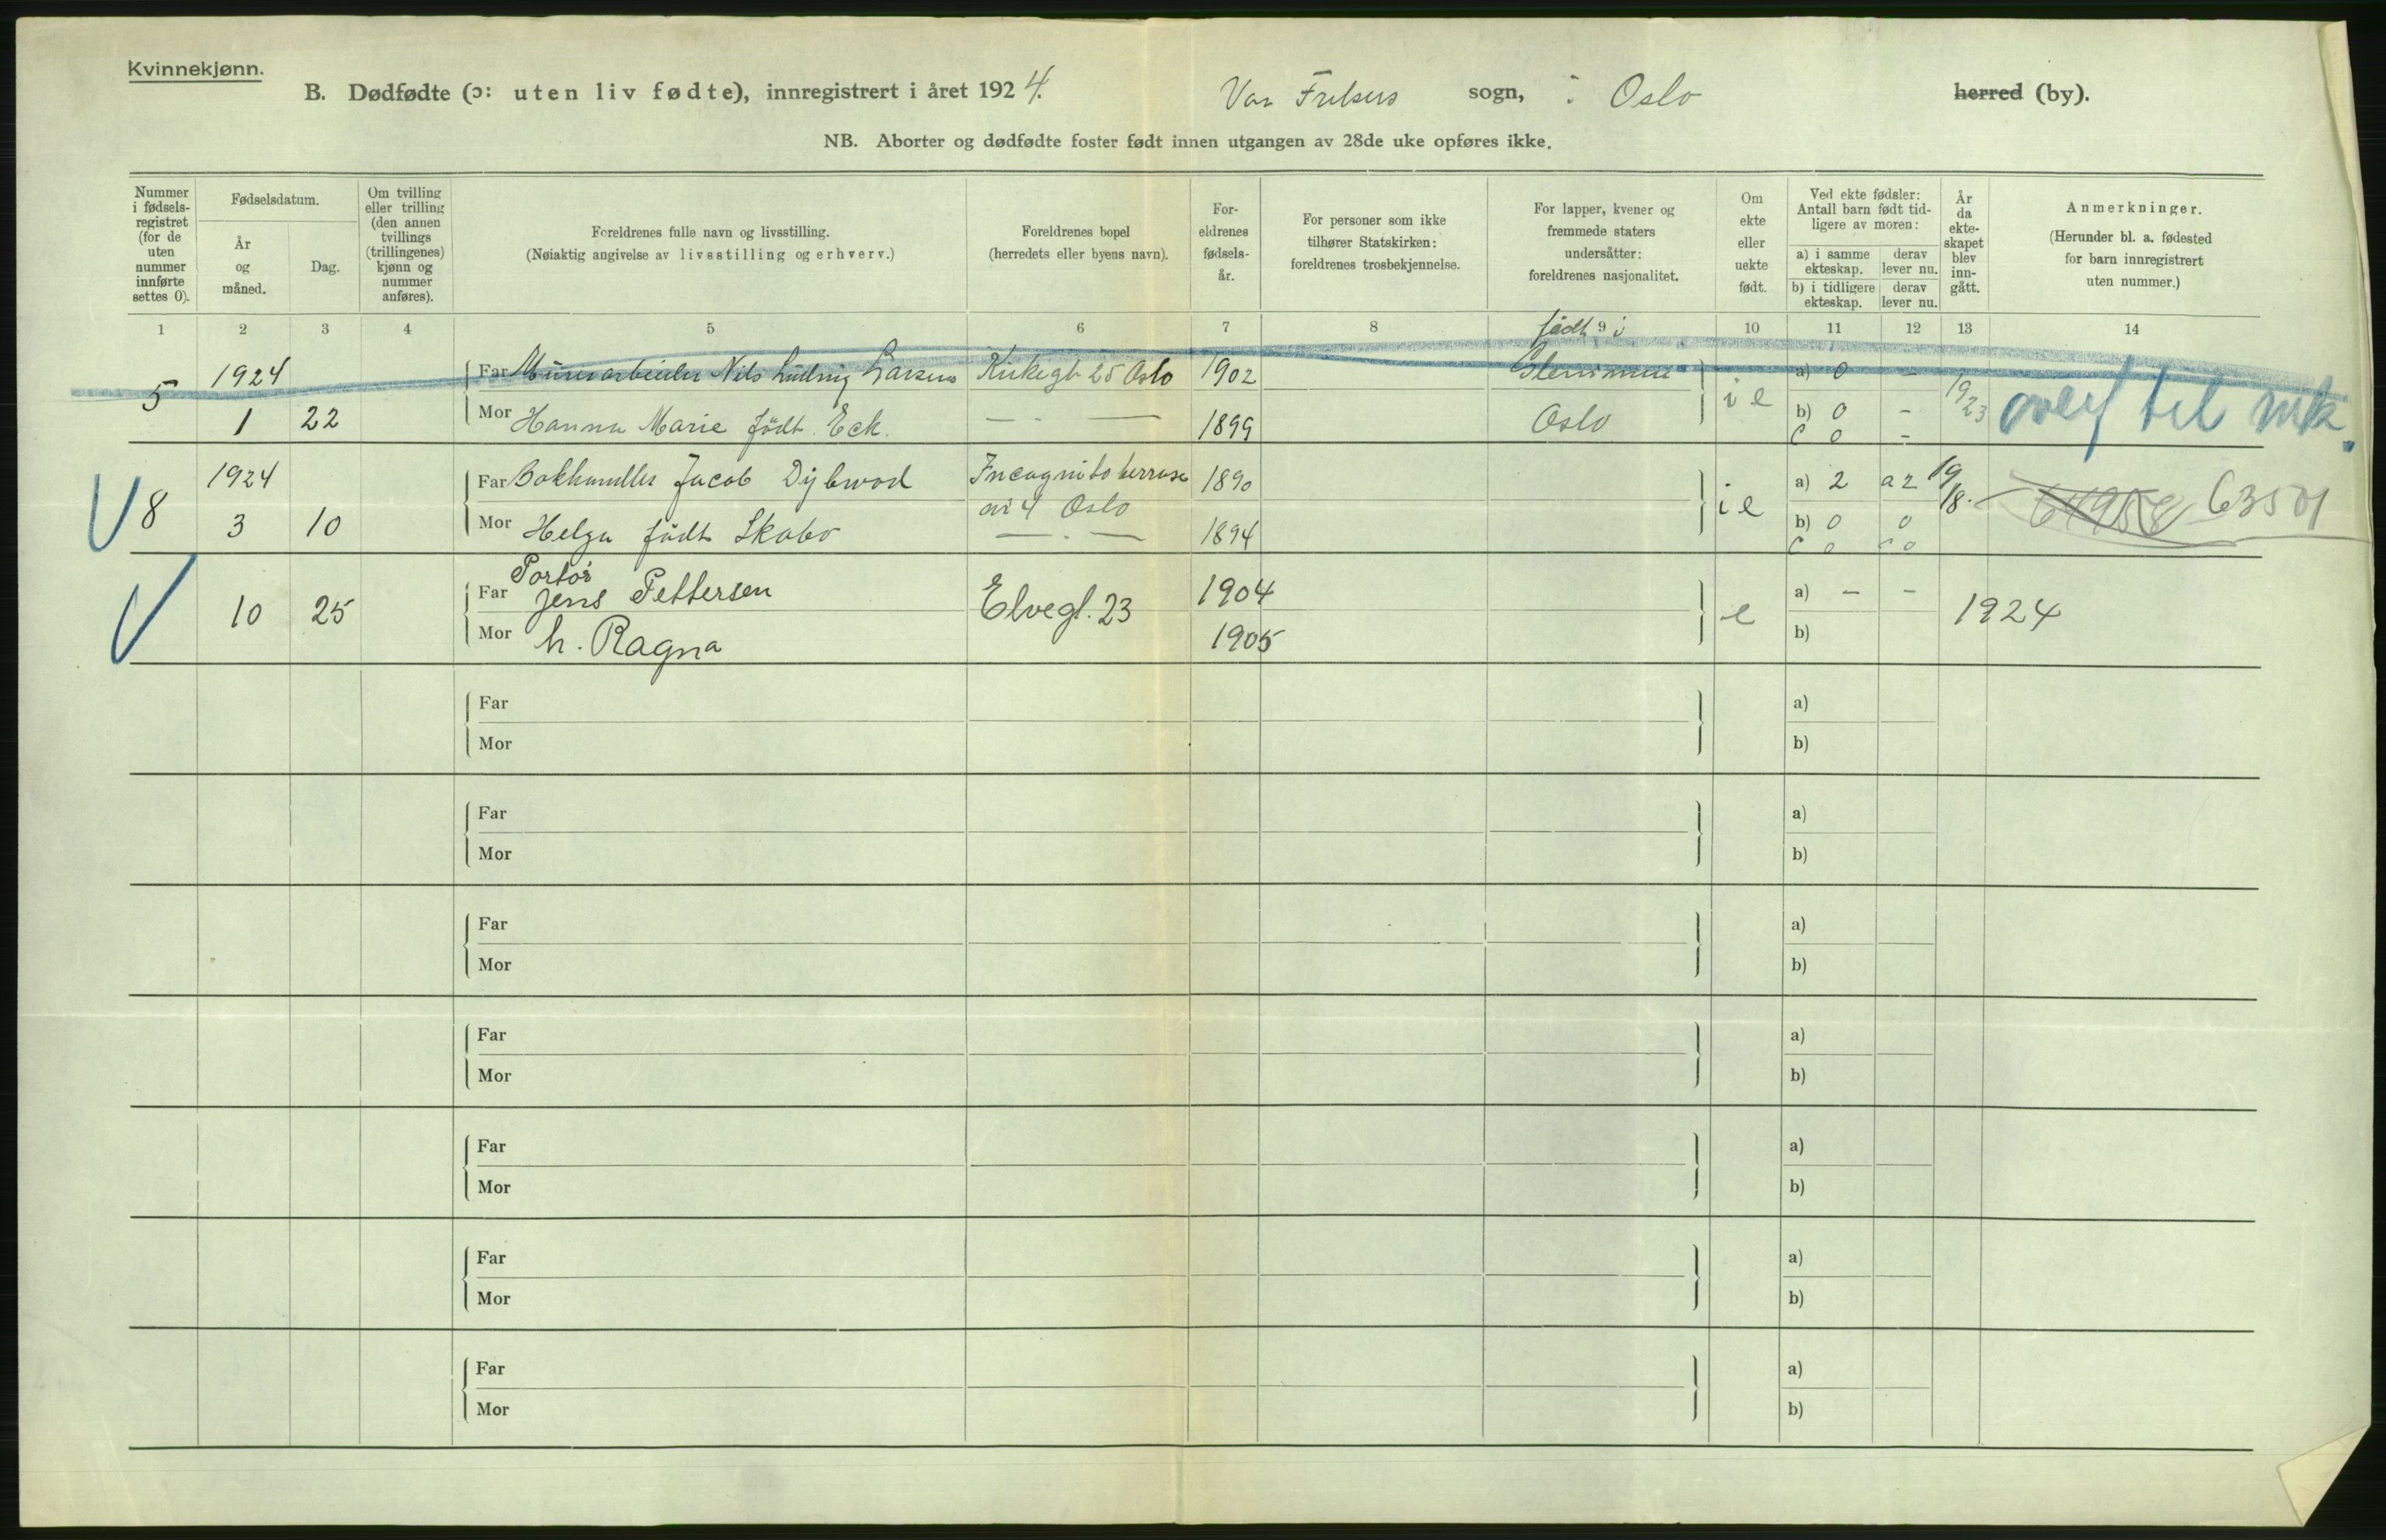 Kvinnekjønn.
B. Dødfødte (ɔ: uten liv fødte), innregistrert i året 1924. Vor Frelsers sogn, i Oslo herred (by).
NB. Aborter og dødfødte foster født innen utgangen av 28de uke opføres ikke.
Nummer i fødsels-registret (for de uten nummer innførte settes 0).
Fødselsdatum.
År og måned.
Dag.
Om tvilling eller trilling (den annen tvillings (trillingenes) kjønn og nummer anføres).
Foreldrenes fulle navn og livsstilling.
(Nøiaktig angivelse av livsstilling og erhverv.)
Foreldrenes bopel
(herredets eller byens navn).
For-eldrenes fødsels-år.
For personer som ikke tilhører Statskirken: foreldrenes trosbekjennelse.
For lapper, kvener og fremmede staters undersåtter: foreldrenes nasjonalitet.
Om ekte eller uekte født.
Ved ekte fødsler: Antall barn født tid-ligere av moren:
a) i samme ekteskap.
derav lever nu.
b) i tidligere ekteskap.
derav lever nu.
År da ekte-skapet blev inn-gått.
Anmerkninger.
(Herunder bl. a. fødested for barn innregistrert uten nummer.)
1 2 3 4 5 6 7 8 9 10 11 12 13 14
født i
5 1924 Far Murerarbeider Nils Ludvig Larsen Kirkegt 25 Oslo 1902 Glemmen ie a) 0 - 1923 overf til mk.
1 22 Mor Hanna Marie født Eck. — · — 1899 Oslo b) 0 -
c 0 -
8 1924 Far Bokhandler Jacob Dybwad Incognito terrasse 1890 ie a) 2 a 2 19/18. 64958 63501
nr 4 Oslo
3 10 Mor Helga født Skabo — · — 1894 b) 0 0
c 0 c 0
Portør
10 25 Far Jens Pettersen Elvegt. 23 1904 e a) - - 1924
Mor h. Ragna 1905 b)
Far a)
Mor b)
Far a)
Mor b)
Far a)
Mor b)
Far a)
Mor b)
Far a)
Mor b)
Far a)
Mor b)
Far a)
Mor b)